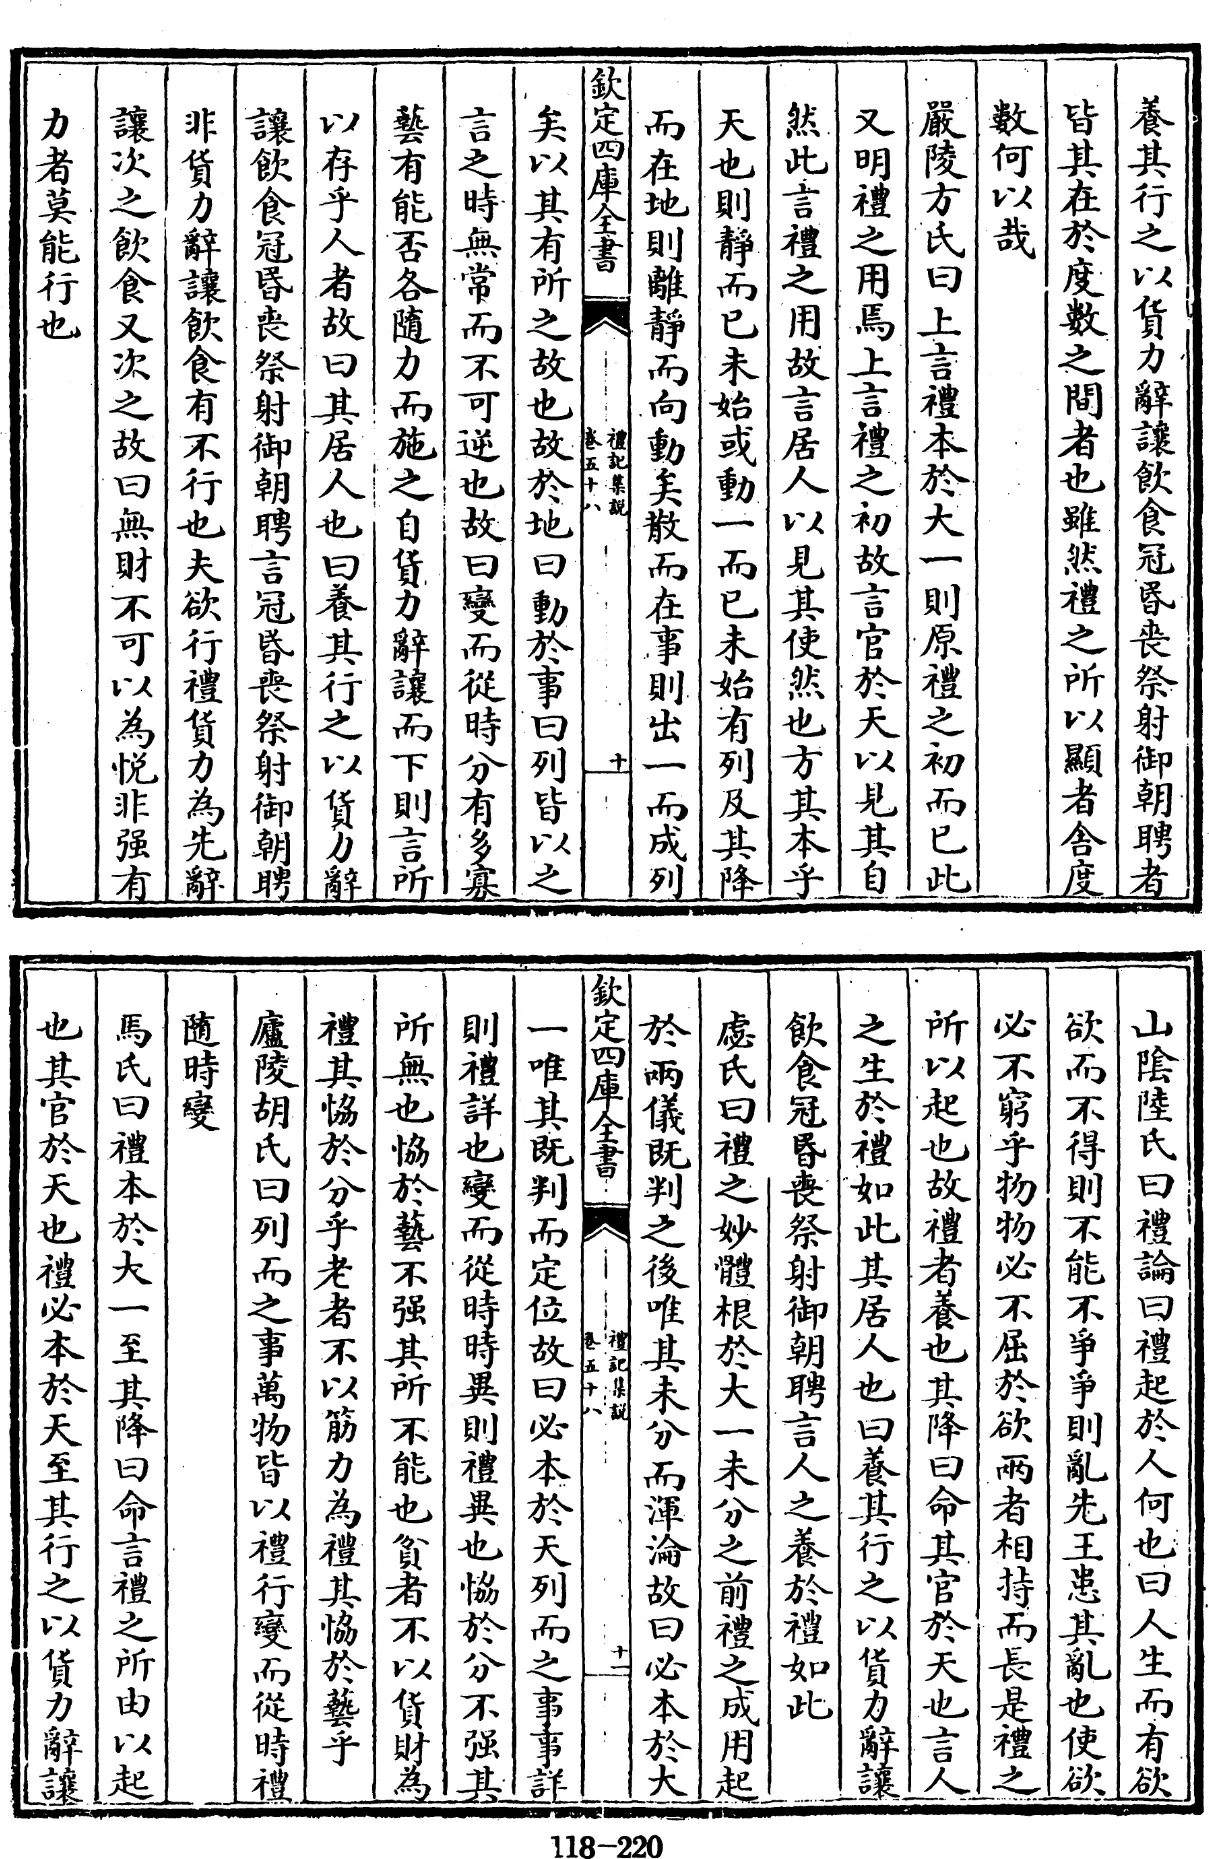 養其行之以貨力辭讓飲食冠昏喪祭射御朝聘者
皆其在於度數之間者也雖然禮之所以顯者舎度
數何以哉
嚴陵方氏曰上言禮本於大一則原禮之初而已此
又明禮之用焉上言禮之初故言官於天以見其自
然此言禮之用故言居人以見其使然也方其本乎
天也則靜而已未始或動一而已未始有列及其降
而在地則離靜而向動矣散而在事則出一而成列
欽定四庫全書
禮記集說
卷五十八
十
矣以其有所之故也故於地曰動於事曰列皆以之
言之時無常而不可逆也故曰變而從時分有多寡
藝有能否各隨力而施之自貨力辭讓而下則言所
以存乎人者故曰其居人也曰養其行之以貨力辭
讓飲食冠昏喪祭射御朝聘言冠昏喪祭射御朝聘
非貨力辭讓飲食有不行也夫欲行禮貨力為先辭
讓次之飲食又次之故曰無財不可以為悅非强有
力者莫能行也
山陰陸氏曰禮論曰禮起於人何也曰人生而有欲
欲而不得則不能不爭爭則亂先王患其亂也使欲
必不窮乎物物必不屈於欲兩者相持而長是禮之
所以起也故禮者養也其降曰命其官於天也言人
之生於禮如此其居人也曰養其行之以貨力辭讓
飲食冠昏喪祭射御朝聘言人之養於禮如此
慮氏曰禮之妙體根於大一未分之前禮之成用起
於兩儀既判之後唯其未分而渾淪故曰必本於大
欽定四庫全書
禮記集說
卷五十八
十一
一唯其既判而定位故曰必本於天列而之事事詳
則禮詳也變而從時時異則禮異也恊於分不强其
所無也恊於藝不强其所不能也貧者不以貨財為
禮其恊於分乎老者不以筋力為禮其恊於藝乎
廬陵胡氏曰列而之事萬物皆以禮行變而從時禮
隨時變
馬氏曰禮本於大一至其降曰命言禮之所由以起
也其官於天也禮必本於天至其行之以貨力辭讓
118-220